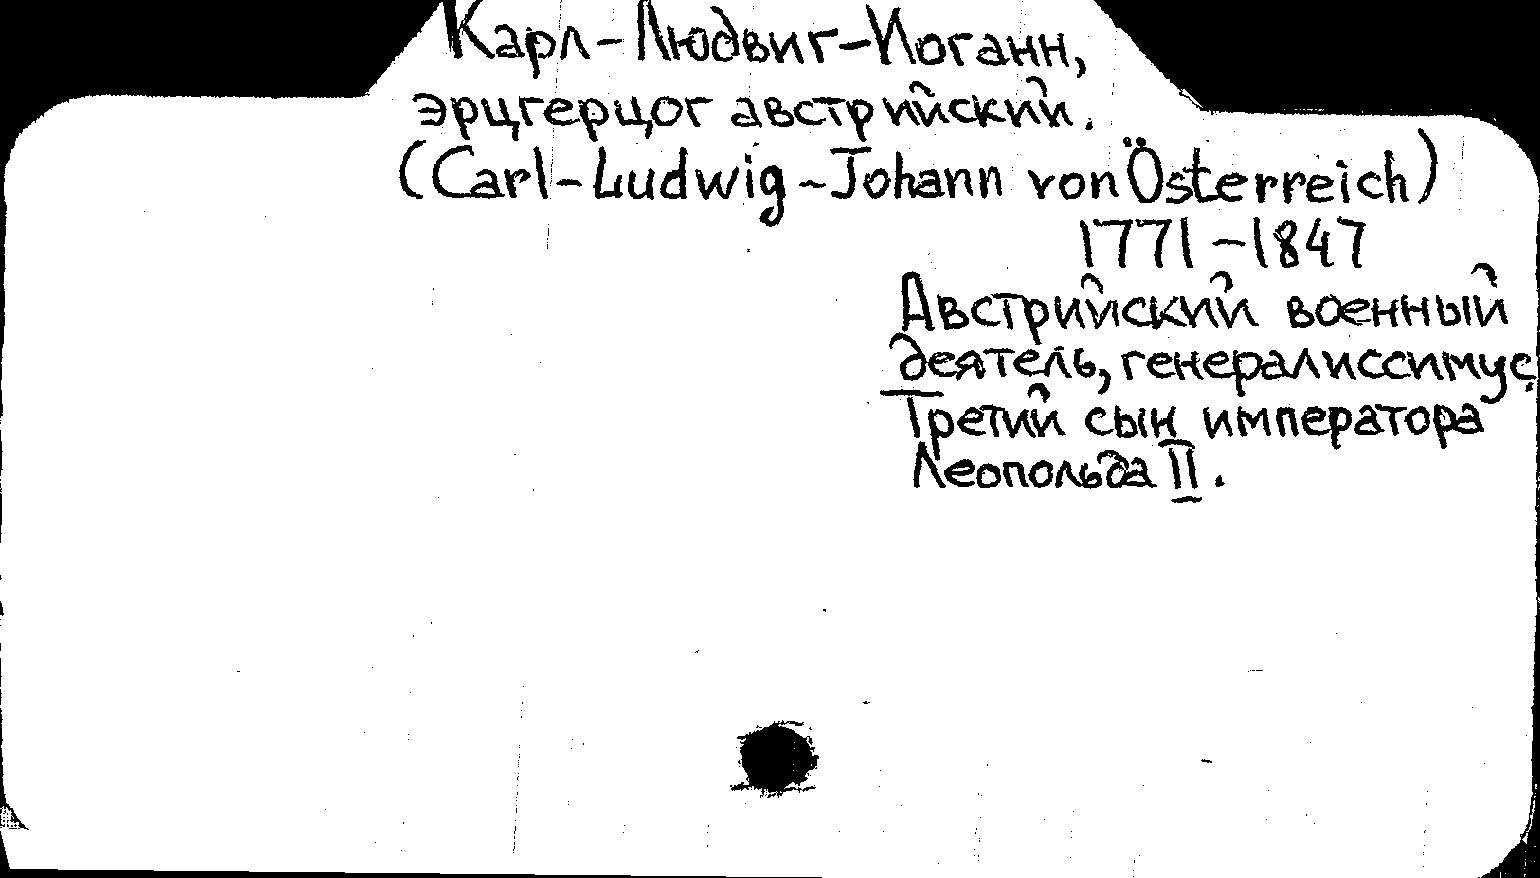 Карл-Людвиг-Иоганн,
эрцгерцог австрийский.
(Carl-Ludwig-Johann von Österreich)
1771-1847
Австрийский военный
деятель, генералиссимус.
Третий сын императора
Леопольда II.